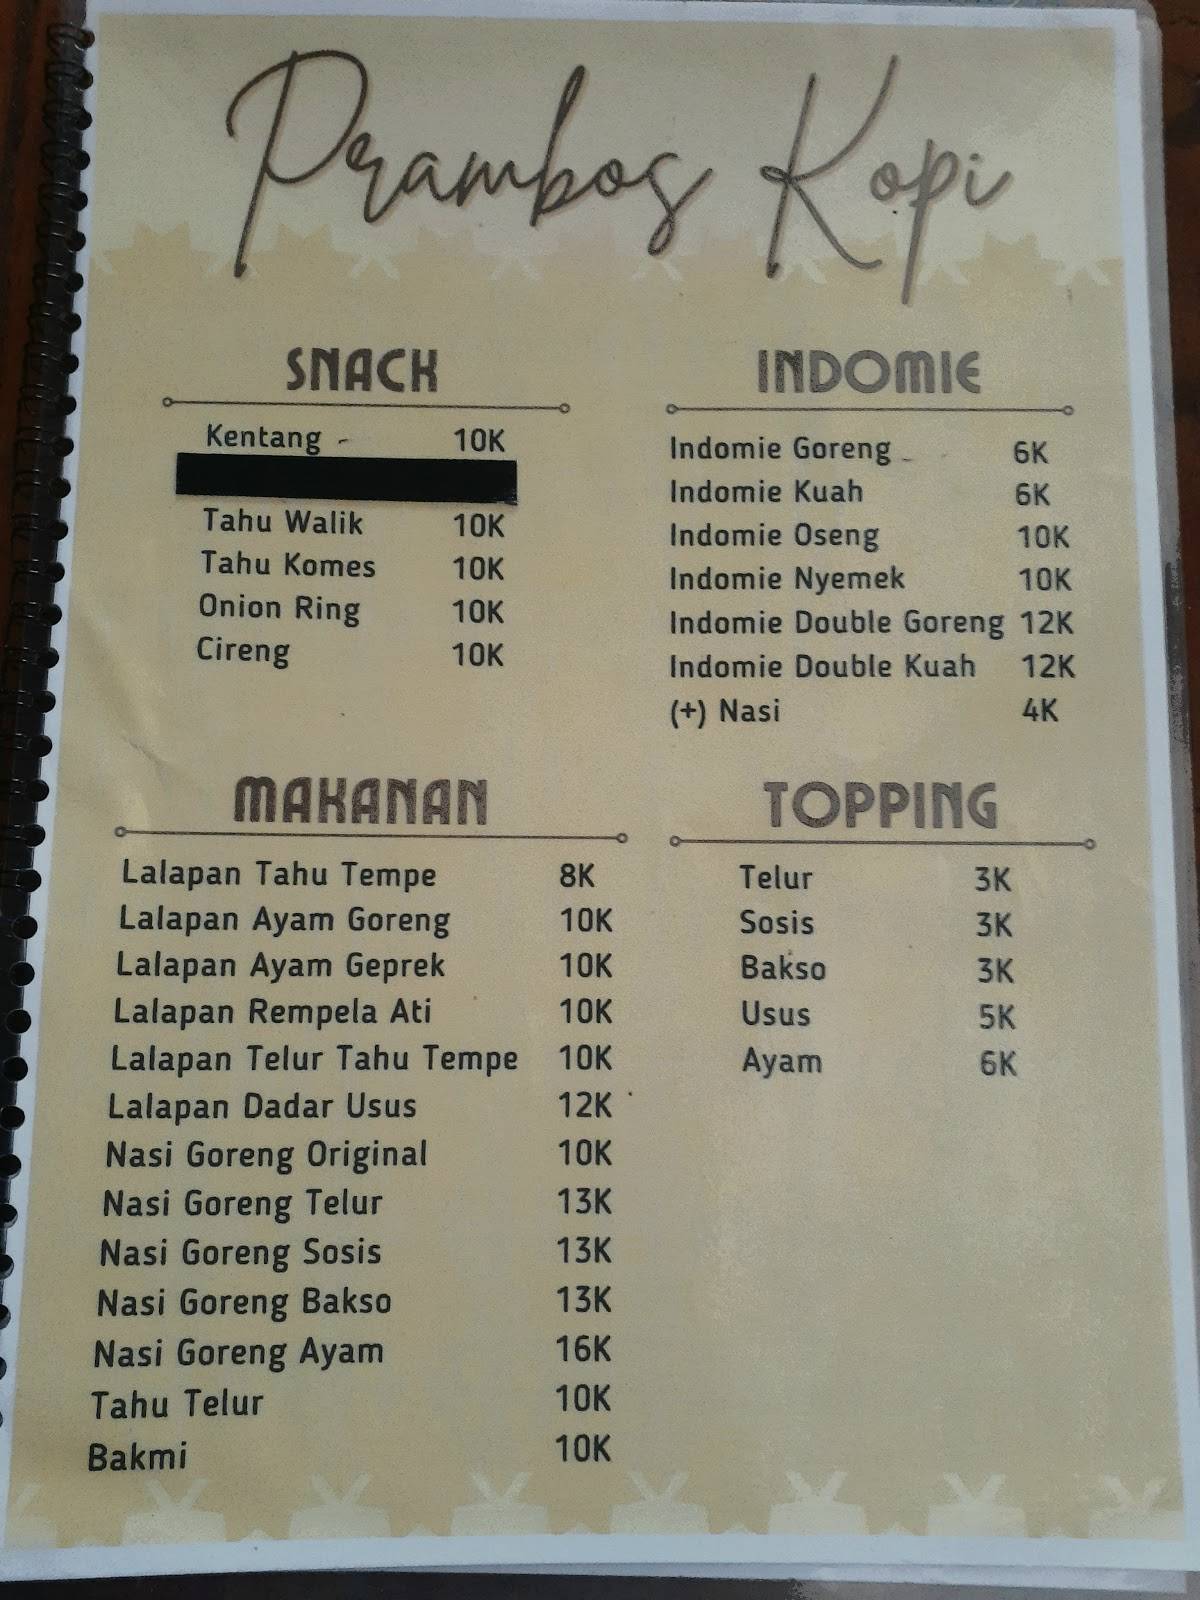 Prambos Kopi
SNACK
Kentang 10K
Tahu Walik 10K
Tahu Komes 10K
Onion Ring 10K
Cireng 10K
INDOMIE
Indomie Goreng 6K
Indomie Kuah 6K
Indomie Oseng 10K
Indomie Nyemek 10K
Indomie Double Goreng 12K
Indomie Double Kuah 12K
(+) Nasi 4K
MAKANAN
Lalapan Tahu Tempe 8K
Lalapan Ayam Goreng 10K
Lalapan Ayam Geprek 10K
Lalapan Rempela Ati 10K
Lalapan Telur Tahu Tempe 10K
Lalapan Dadar Usus 12K
Nasi Goreng Original 10K
Nasi Goreng Telur 13K
Nasi Goreng Sosis 13K
Nasi Goreng Bakso 13K
Nasi Goreng Ayam 16K
Tahu Telur 10K
Bakmi 10K
TOPPING
Telur 3K
Sosis 3K
Bakso 3K
Usus 5K
Ayam 6K